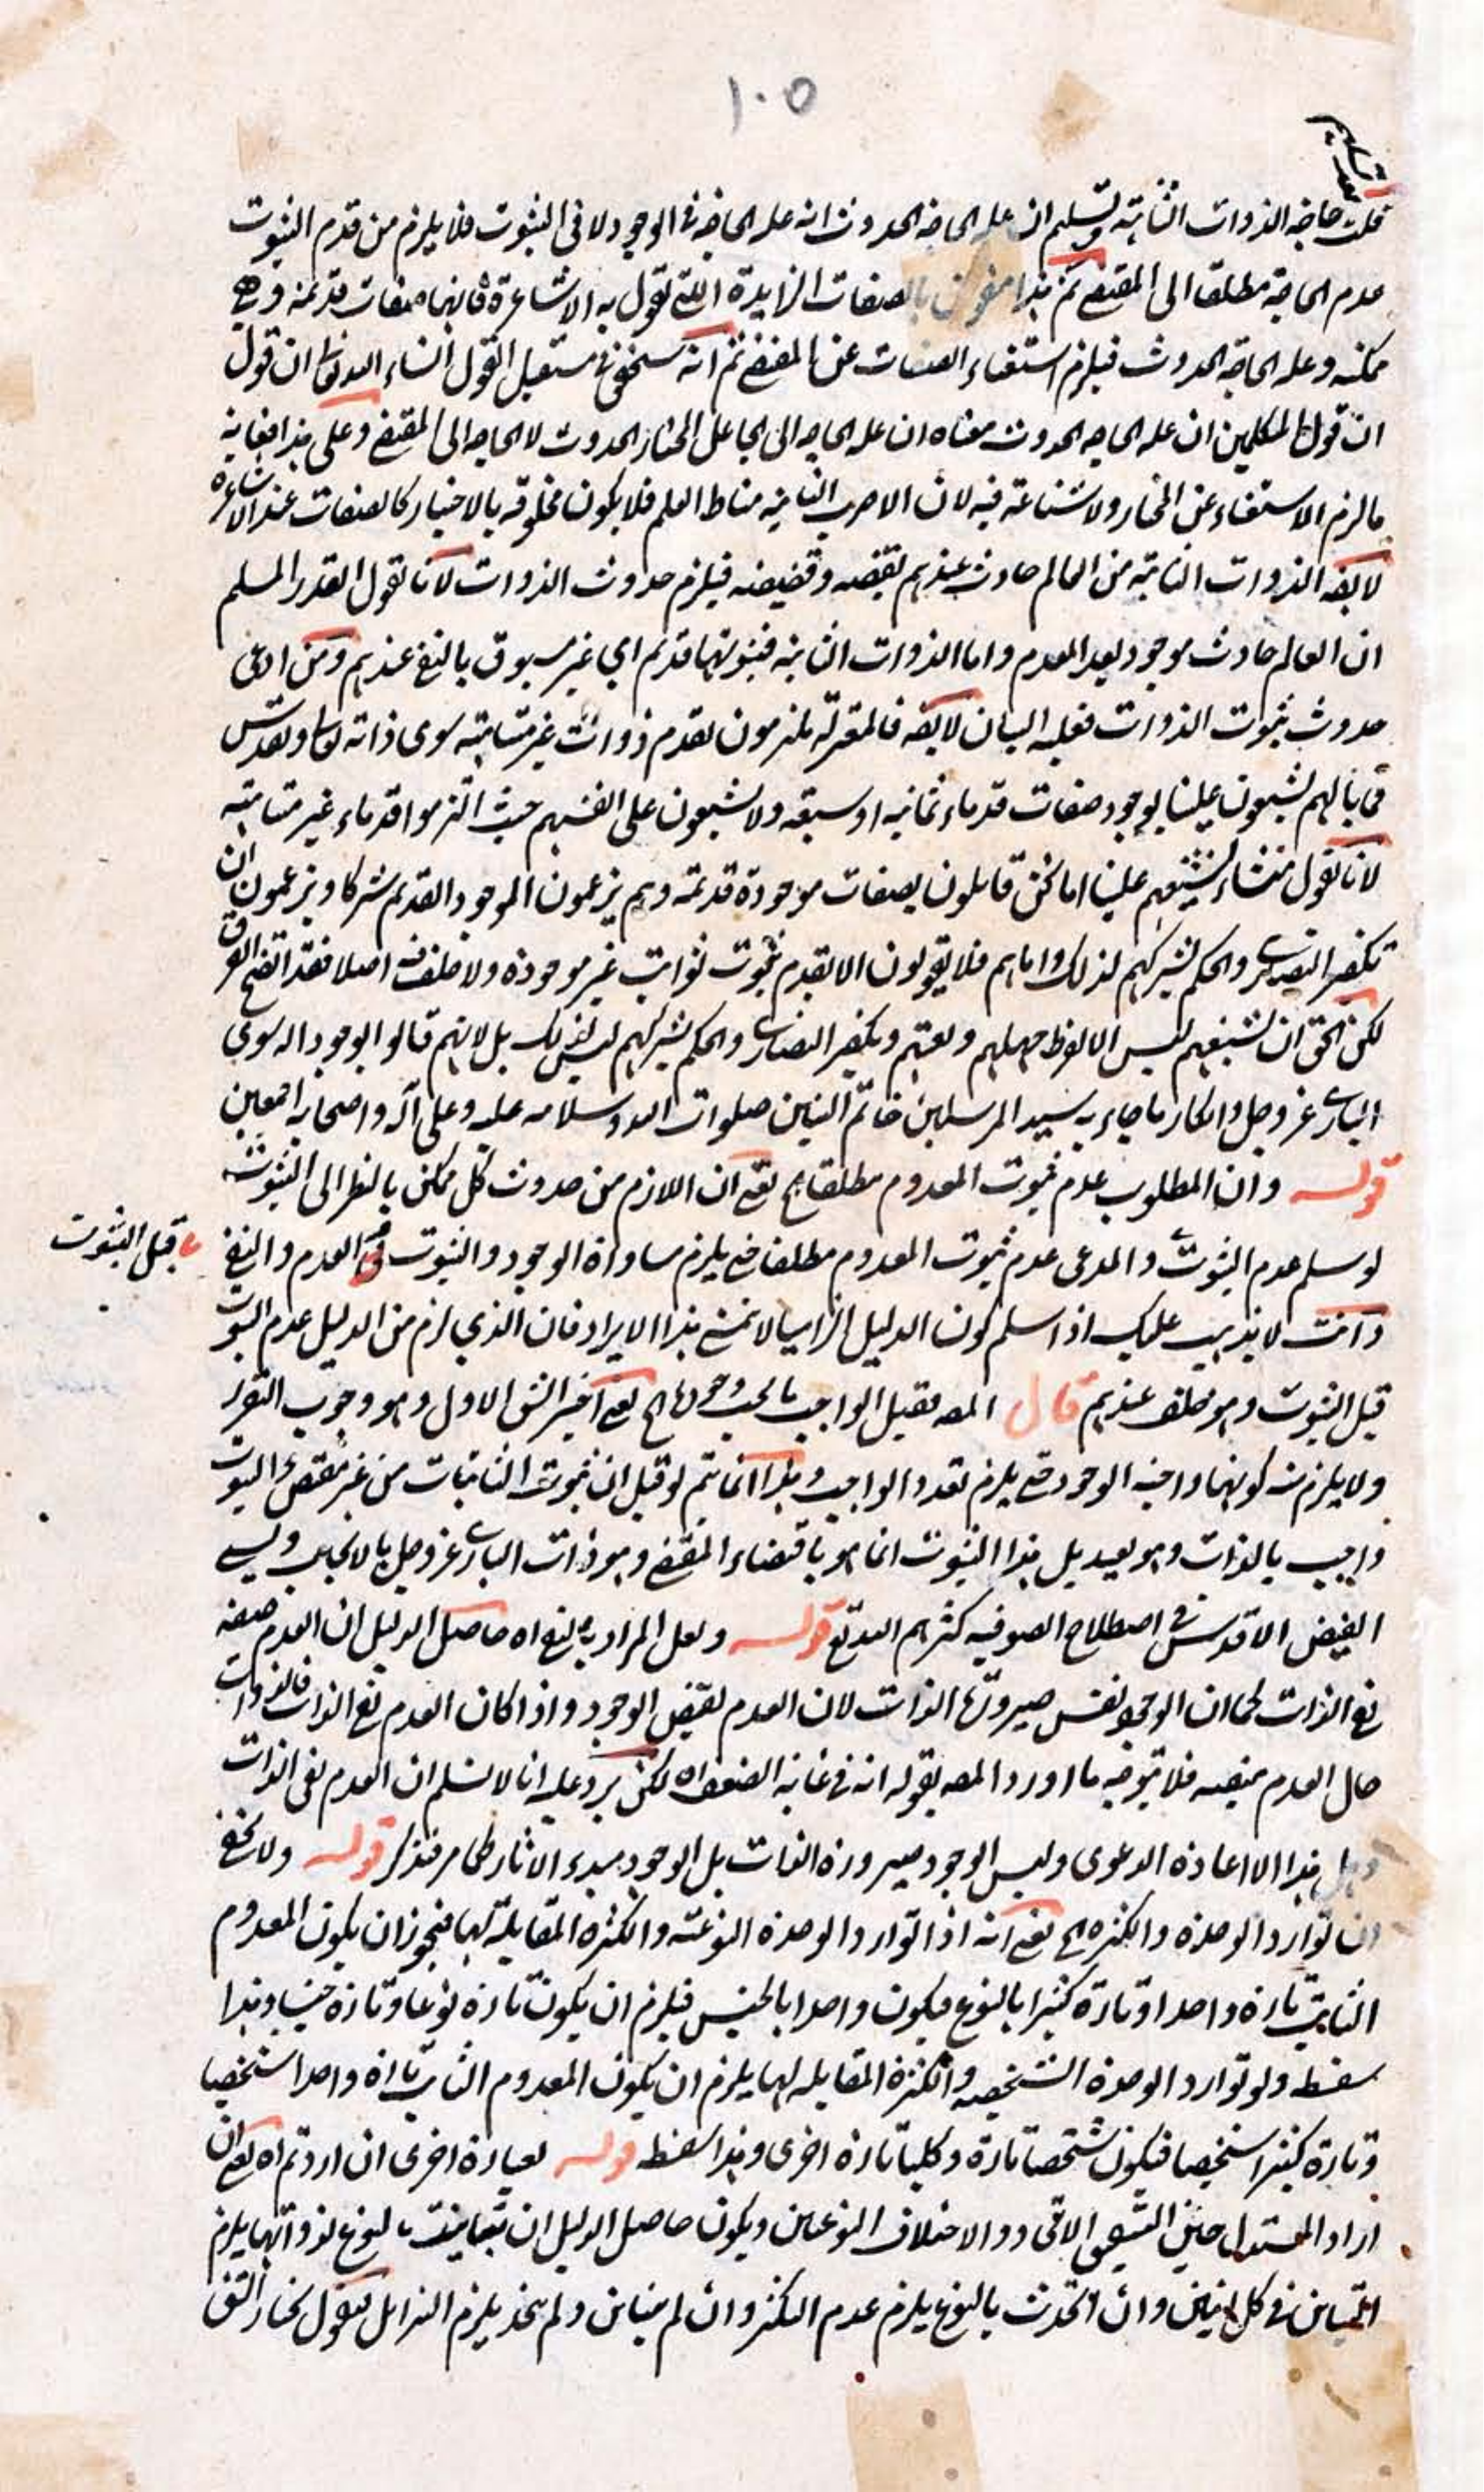 ١٠٥
بعد تسليم
قلت حاجة الذوات الثابتة وتسليم ان علة الحاجة الحدوث انه علة الحاجة في الوجود لا في الثبوت فلا يلزم من قدم الثبوت
عدم الحاجة مطلقا الى المقتضي ثم هذا منقوض بالصفات الزايدة اللتي تقول به الاشاعرة فانها صفات قديمة وهي
ممكنة وعلة الحاجة الحدوث فيلزم استغناء الصفات عن المقتضي ثم انه سنحقق في مستقبل القول انشاء الله تعالى ان قول
ان قول المتكلمين ان علة الحاجة الحدوث معناه ان علة الحاجة الى الجاعل المختار الحدوث لا الحاجة الى المقتضي وعلى هذا فغاية
ما لزم الاستغناء عن المختار ولا شناعة فيه لان الامور الثابتة مناط العلم فلا يكون مخلوقة بالاختيار كالصفات عند الاشاعرة
لا يقال الذوات الثابتة من العالم حادث عندهم بقضه وقضيضه فيلزم حدوث الذوات لانا نقول القدر المسلم
ان العالم حادث موجود بعد العدم واما الذوات الثابتة فثبوتها قديم اي غير مسبوق بالنفي عندهم ومن ادعى
حدوث ثبوت الذوات فعليه البيان لا يقال فالمعتزلة ملتزمون بقدم ذوات غير متناهية سوى ذاته تعالى وتقدس
فما بالهم يشنعون علينا بوجود صفات قدماء ثمانية او سبعة ولا يشنعون على انفسهم حيث التزموا قدماء غير متناهية
لانا نقول منشاء تشنيعهم علينا اما نحن قايلون بصفات موجودة قديمة وهم يزعمون الموجود القديم شركا ويزعمون ان
تكفير النصارى والحكم بشركهم لذلك واما هم فلا يقولون الا بقدم ثبوت ثوابت غير موجودة ولا خلف فيه اصلا فقد اتضح الفرق
لكن الحق ان تشنيعهم ليس الا لفرط جهلهم وتعنتهم وتكفير النصارى والحكم بشركهم ليس لذلك بل لانهم قالوا بوجود اله سوى
الباري عز وجل وانكار ما جاء به سيد المرسلين خاتم النبيين صلوات الله وسلامه عليه وعلى آله واصحابه اجمعين
قوله وان المطلوب عدم ثبوت المعدوم مطلقا الخ يعني ان اللازم من حدوث كل ممكن بالنظر الى الثبوت
لو سلم عدم الثبوت والمدعى عدم ثبوت المعدوم مطلقا حتى يلزم مساواة الوجود والثبوت في العدم والنفي
قبل الثبوت
وانت لا يذهب عليك اذا سلم كون الدليل الزاميا لا يتمشى هذا الايراد فان الذي لزم من الدليل عدم الثبوت
قبل الثبوت وهو خلف عندهم قال المصـ فقيل الواجب ما يجب وجوده الخ يعني اختير الشق الاول وهو وجوب التقرر
ولا يلزم منه كونها واجبة الوجود حتى يلزم تعدد الواجب وهذا انما يتم لو قيل ان ثبوت الثابتات من غير مقتضي الثبوت
واجب بالذات وهو بعيد بل هذا الثبوت انما هو باقتضاء المقتضي وهو ذات الباري عز وجل بالايجاب ويسمى
الفيض الاقدس في اصطلاح الصوفية كثرهم الله تعالى قوله ولعل المراد به نفي اه حاصل الدليل ان العدم صفة
نفي الذات كما ان الوجود نفس صيرورة الذات لان العدم نقيض الوجود واذا كان العدم نفي الذات فالذوات
حال العدم منفية فلا يتوجه ما اورد المصـ بقوله انه في غاية الضعف اه لكن يرد عليه انا لا نسلم ان العدم نفي الذات
وهل هذا الا اعادة الدعوى وليس الوجود صيرورة الذات بل الوجود مبدء الاثار كما مر فتذكر قوله ولا يخفى
ان توارد الوحدة والكثرة الخ يعني انه اذا توارد الوحدة النوعية والكثرة المقابلة لها فيجوز ان يكون المعدوم
الثابت تارة واحدا وتارة كثيرا بالنوع فيكون واحدا بالجنس فيلزم ان يكون تارة نوعا وتارة جنسا وهذا
سفسطة ولو توارد الوحدة الشخصية والكثرة المقابلة لها يلزم ان يكون المعدوم الثابت تارة واحدا شخصيا
وتارة كثيرا شخصيا فيكون شخصا تارة وكليا تارة اخرى وهذا سفسطة قوله بعبارة اخرى ان اردتم اه يعني ان
اراد المستدل حين التشقيق الاتحاد والاختلاف النوعيين ويكون حاصل الدليل ان تباينت بالنوع لذواتها يلزم
التباين في كل اثنين وان اتحدت بالنوع يلزم عدم التكثر وان لم يتباين ولم يتحد يلزم التزايل فنقول نختار الشق